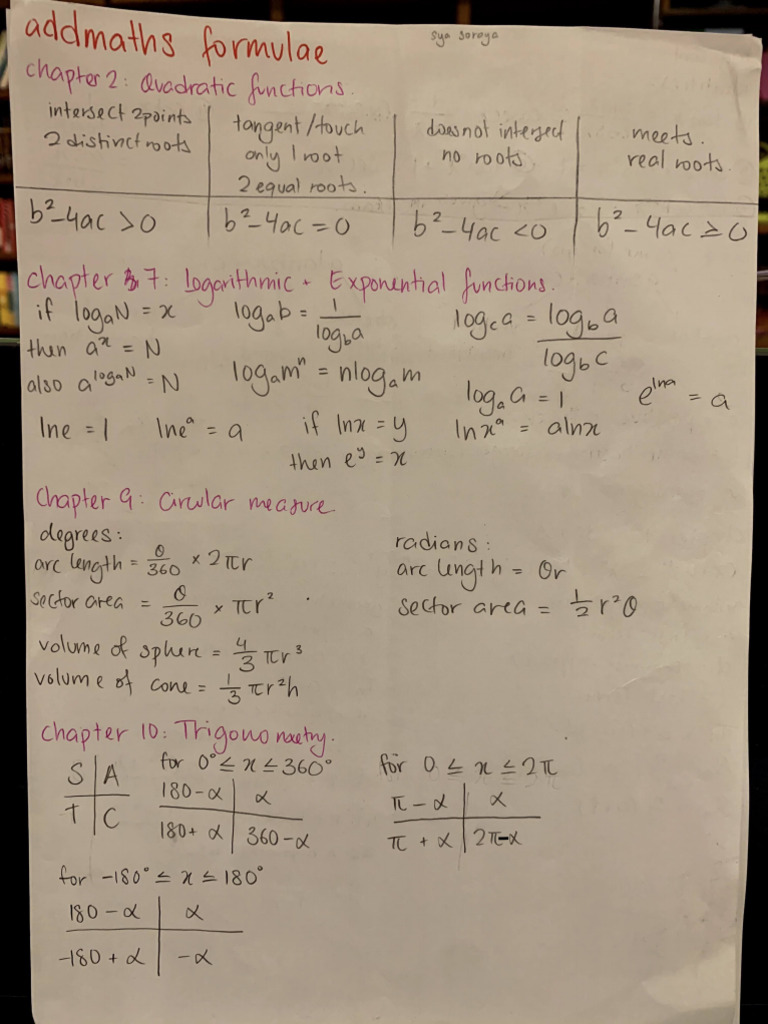 addmaths formulae
sya soraya
chapter 2: Quadratic functions.
intersect 2points
2 distinct roots
tangent/touch
only 1 root
2 equal roots.
does not intersect
no roots.
meets.
real roots.
b²-4ac > 0
b²-4ac = 0
b²-4ac < 0
b²-4ac ≥ 0
chapter 7: Logarithmic + Exponential functions.
if logₐN = x
then aˣ = N
also a^(logₐN) = N
logₐb = 1/(log_b a)
logₐmⁿ = nlogₐm
log_c a = (log_b a)/(log_b c)
logₐa = 1
e^(lna) = a
lne = 1
lneᵃ = a
if lnx = y
then eʸ = x
lnxᵃ = alnx
Chapter 9: Circular measure
degrees:
arc length = θ/360 × 2πr
sector area = θ/360 × πr²
volume of sphere = 4/3 πr³
volume of cone = 1/3 πr²h
radians:
arc length = θr
sector area = 1/2 r²θ
Chapter 10: Trigonometry.
S | A
T | C
for 0° ≤ x ≤ 360°
180-α | α
180+α | 360-α
for 0 ≤ x ≤ 2π
π-α | α
π+α | 2π-α
for -180° ≤ x ≤ 180°
180-α | α
-180+α | -α